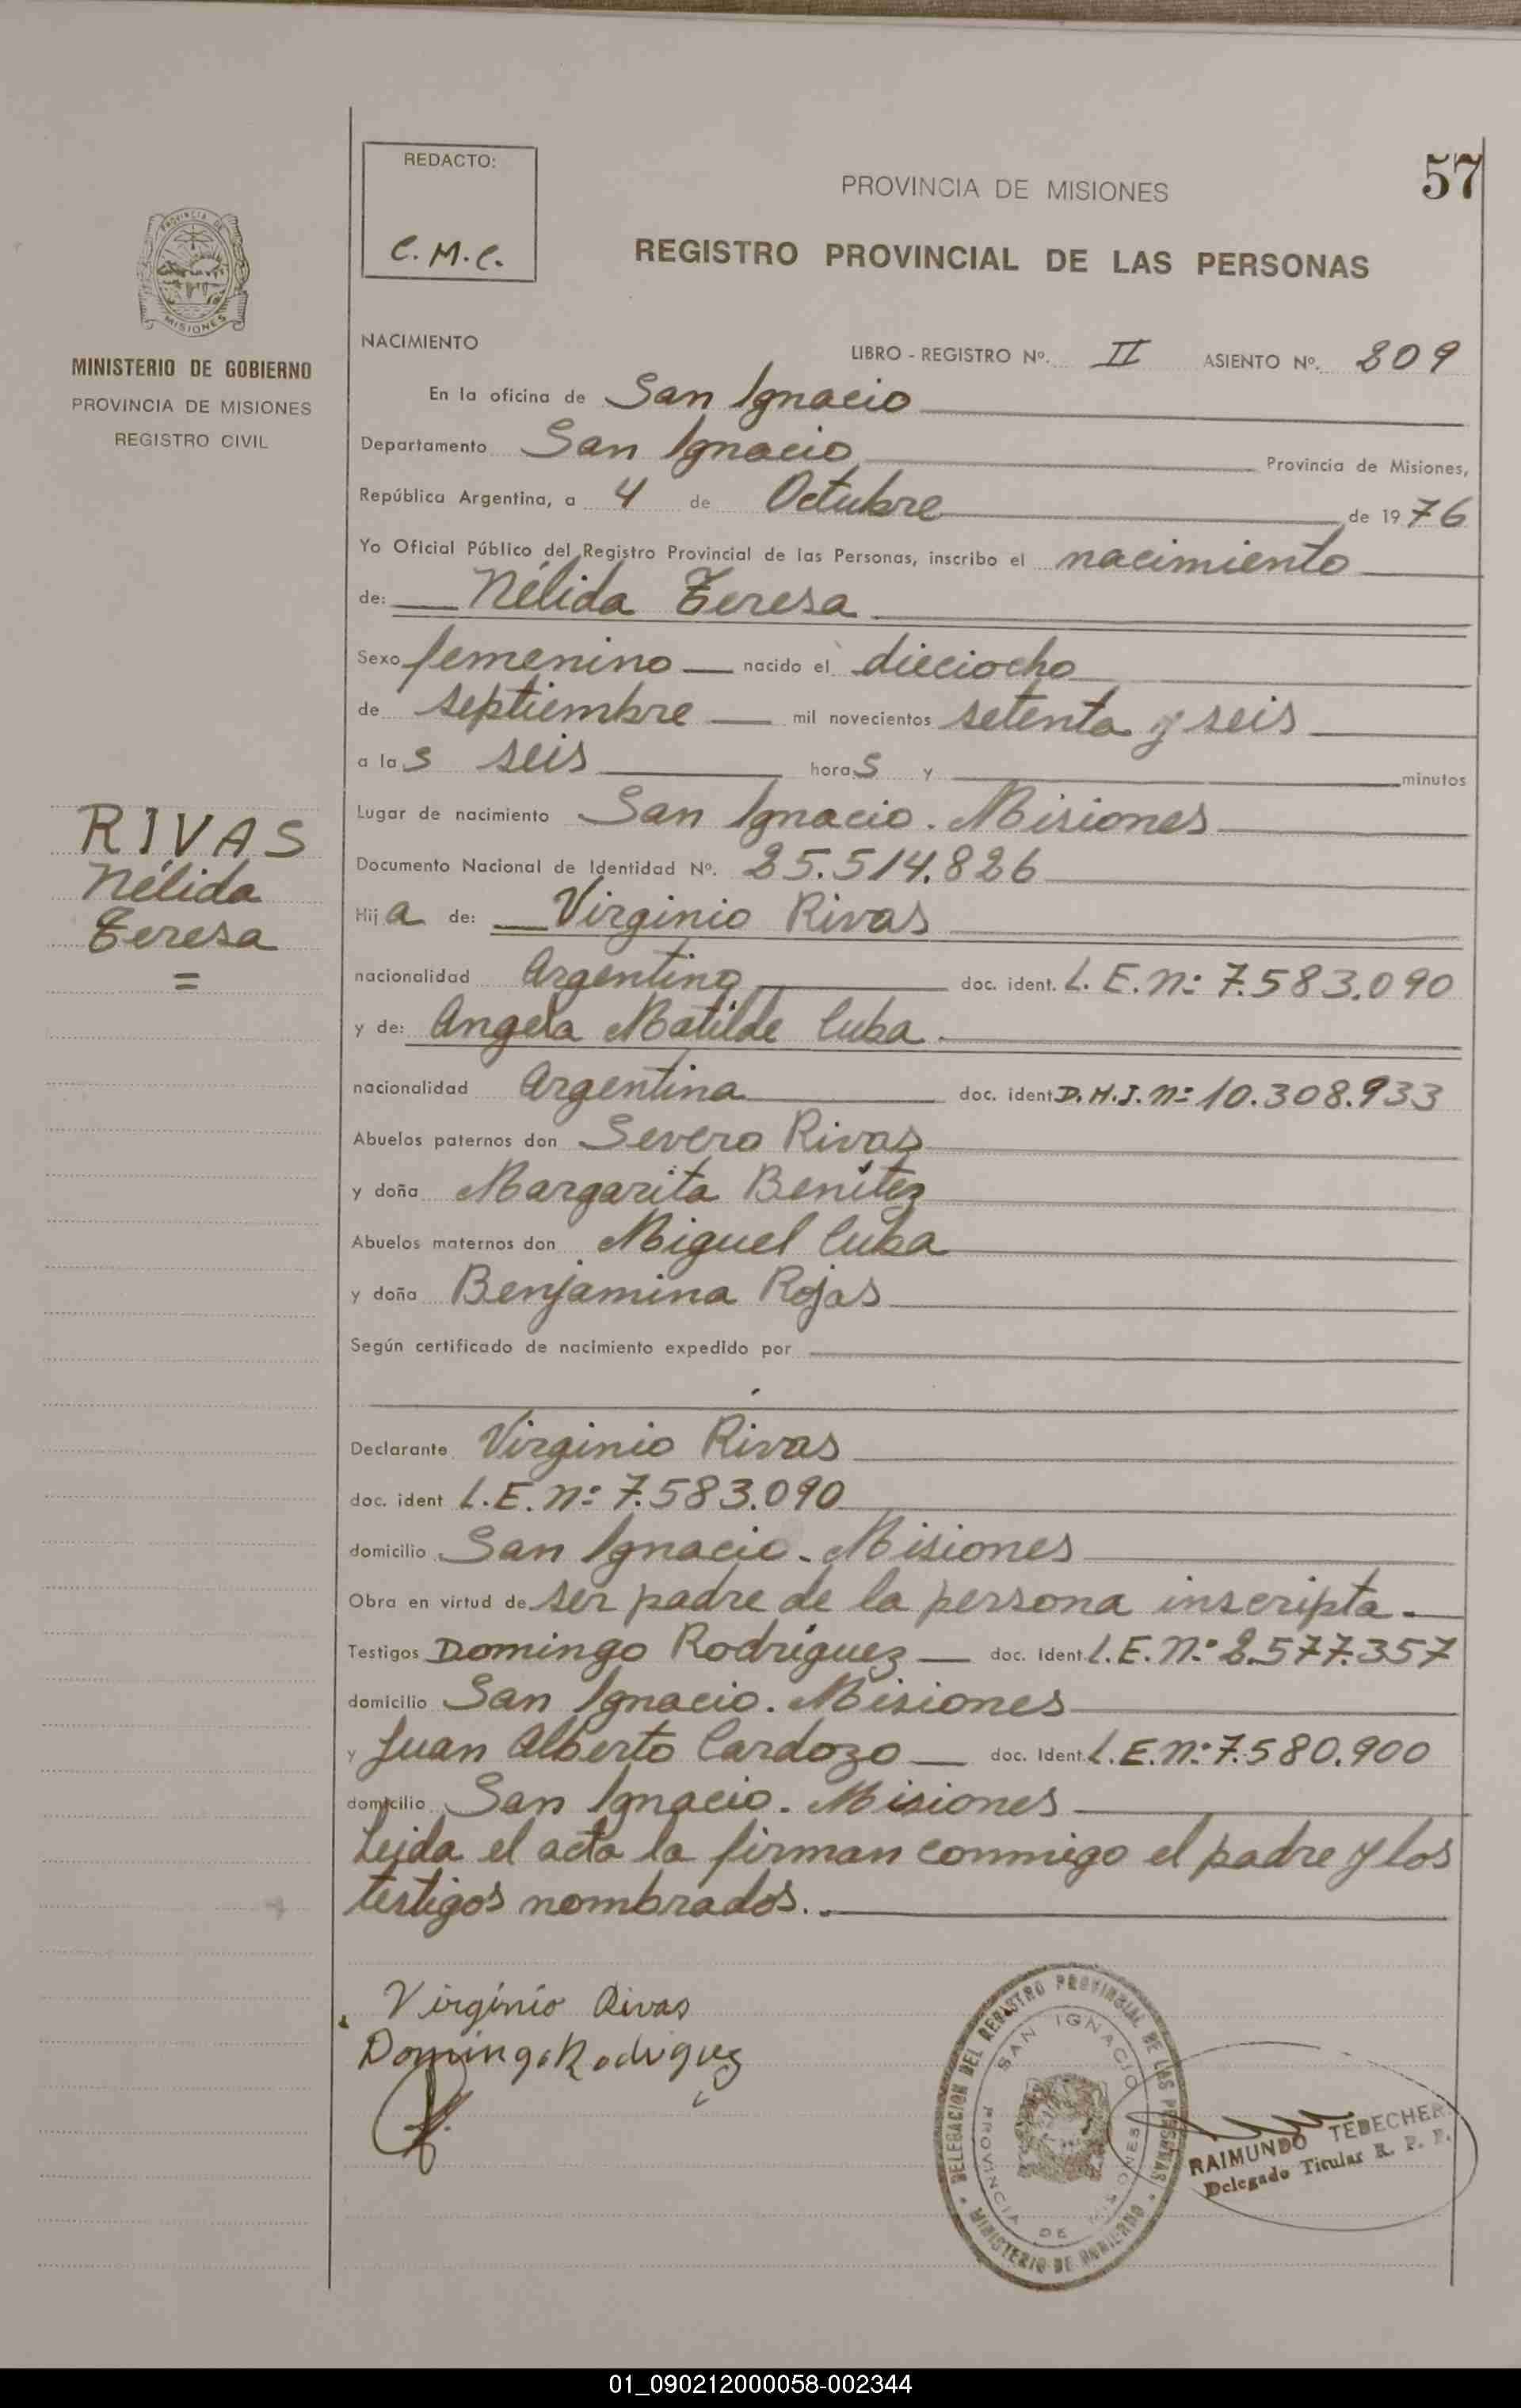 57
REDACTO:
C. M. C.
PROVINCIA DE MISIONES
REGISTRO PROVINCIAL DE LAS PERSONAS
PROVINCIA DE
MISIONES
MINISTERIO DE GOBIERNO
PROVINCIA DE MISIONES
REGISTRO CIVIL
NACIMIENTO
LIBRO - REGISTRO Nº. II ASIENTO Nº. 809
En la oficina de San Ignacio
Departamento San Ignacio Provincia de Misiones,
República Argentina, a 4 de Octubre de 1976
Yo Oficial Público del Registro Provincial de las Personas, inscribo el nacimiento
de: Nélida Teresa
Sexo femenino nacido el dieciocho
de septiembre mil novecientos setenta y seis
a las seis horas y minutos
Lugar de nacimiento San Ignacio. Misiones
RIVAS
Nélida
Teresa
=
Documento Nacional de Identidad Nº. 25.514.826
Hija de: Virginio Rivas
nacionalidad Argentino doc. ident. L. E. nº 7.583.090
y de: Angela Matilde Cuba
nacionalidad Argentina doc. ident D.N.I. nº 10.308.933
Abuelos paternos don Severo Rivas
y doña Margarita Benítez
Abuelos maternos don Miguel Cuba
y doña Benjamina Rojas
Según certificado de nacimiento expedido por
Declarante Virginio Rivas
doc. ident L.E. nº 7.583.090
domicilio San Ignacio. Misiones
Obra en virtud de ser padre de la persona inscripta.
Testigos Domingo Rodríguez doc. Ident. L.E. nº 2.577.357
domicilio San Ignacio. Misiones
y Juan Alberto Cardozo doc. Ident. L.E. nº 7.580.900
domicilio San Ignacio. Misiones
Leida el acta la firman conmigo el padre y los
testigos nombrados..
Virginio Rivas
Domingo Rodriguez
DELEGACION DEL REGISTRO PROVINCIAL DE LAS PERSONAS
MINISTERIO DE GOBIERNO
SAN IGNACIO
PROVINCIA DE MISIONES
RAIMUNDO TEDECHER
Delegado Titular R. P. P.
01_090212000058-002344